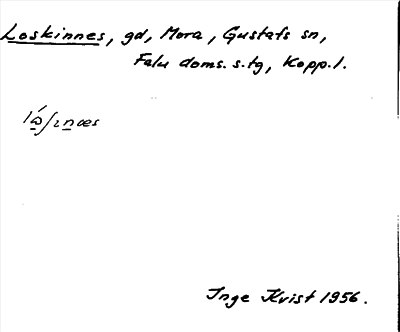 Loskinnes, gd, Mora, Gustafs sn,
Falu doms. s.tg, Kopp. l.
Inge Kvist 1956.